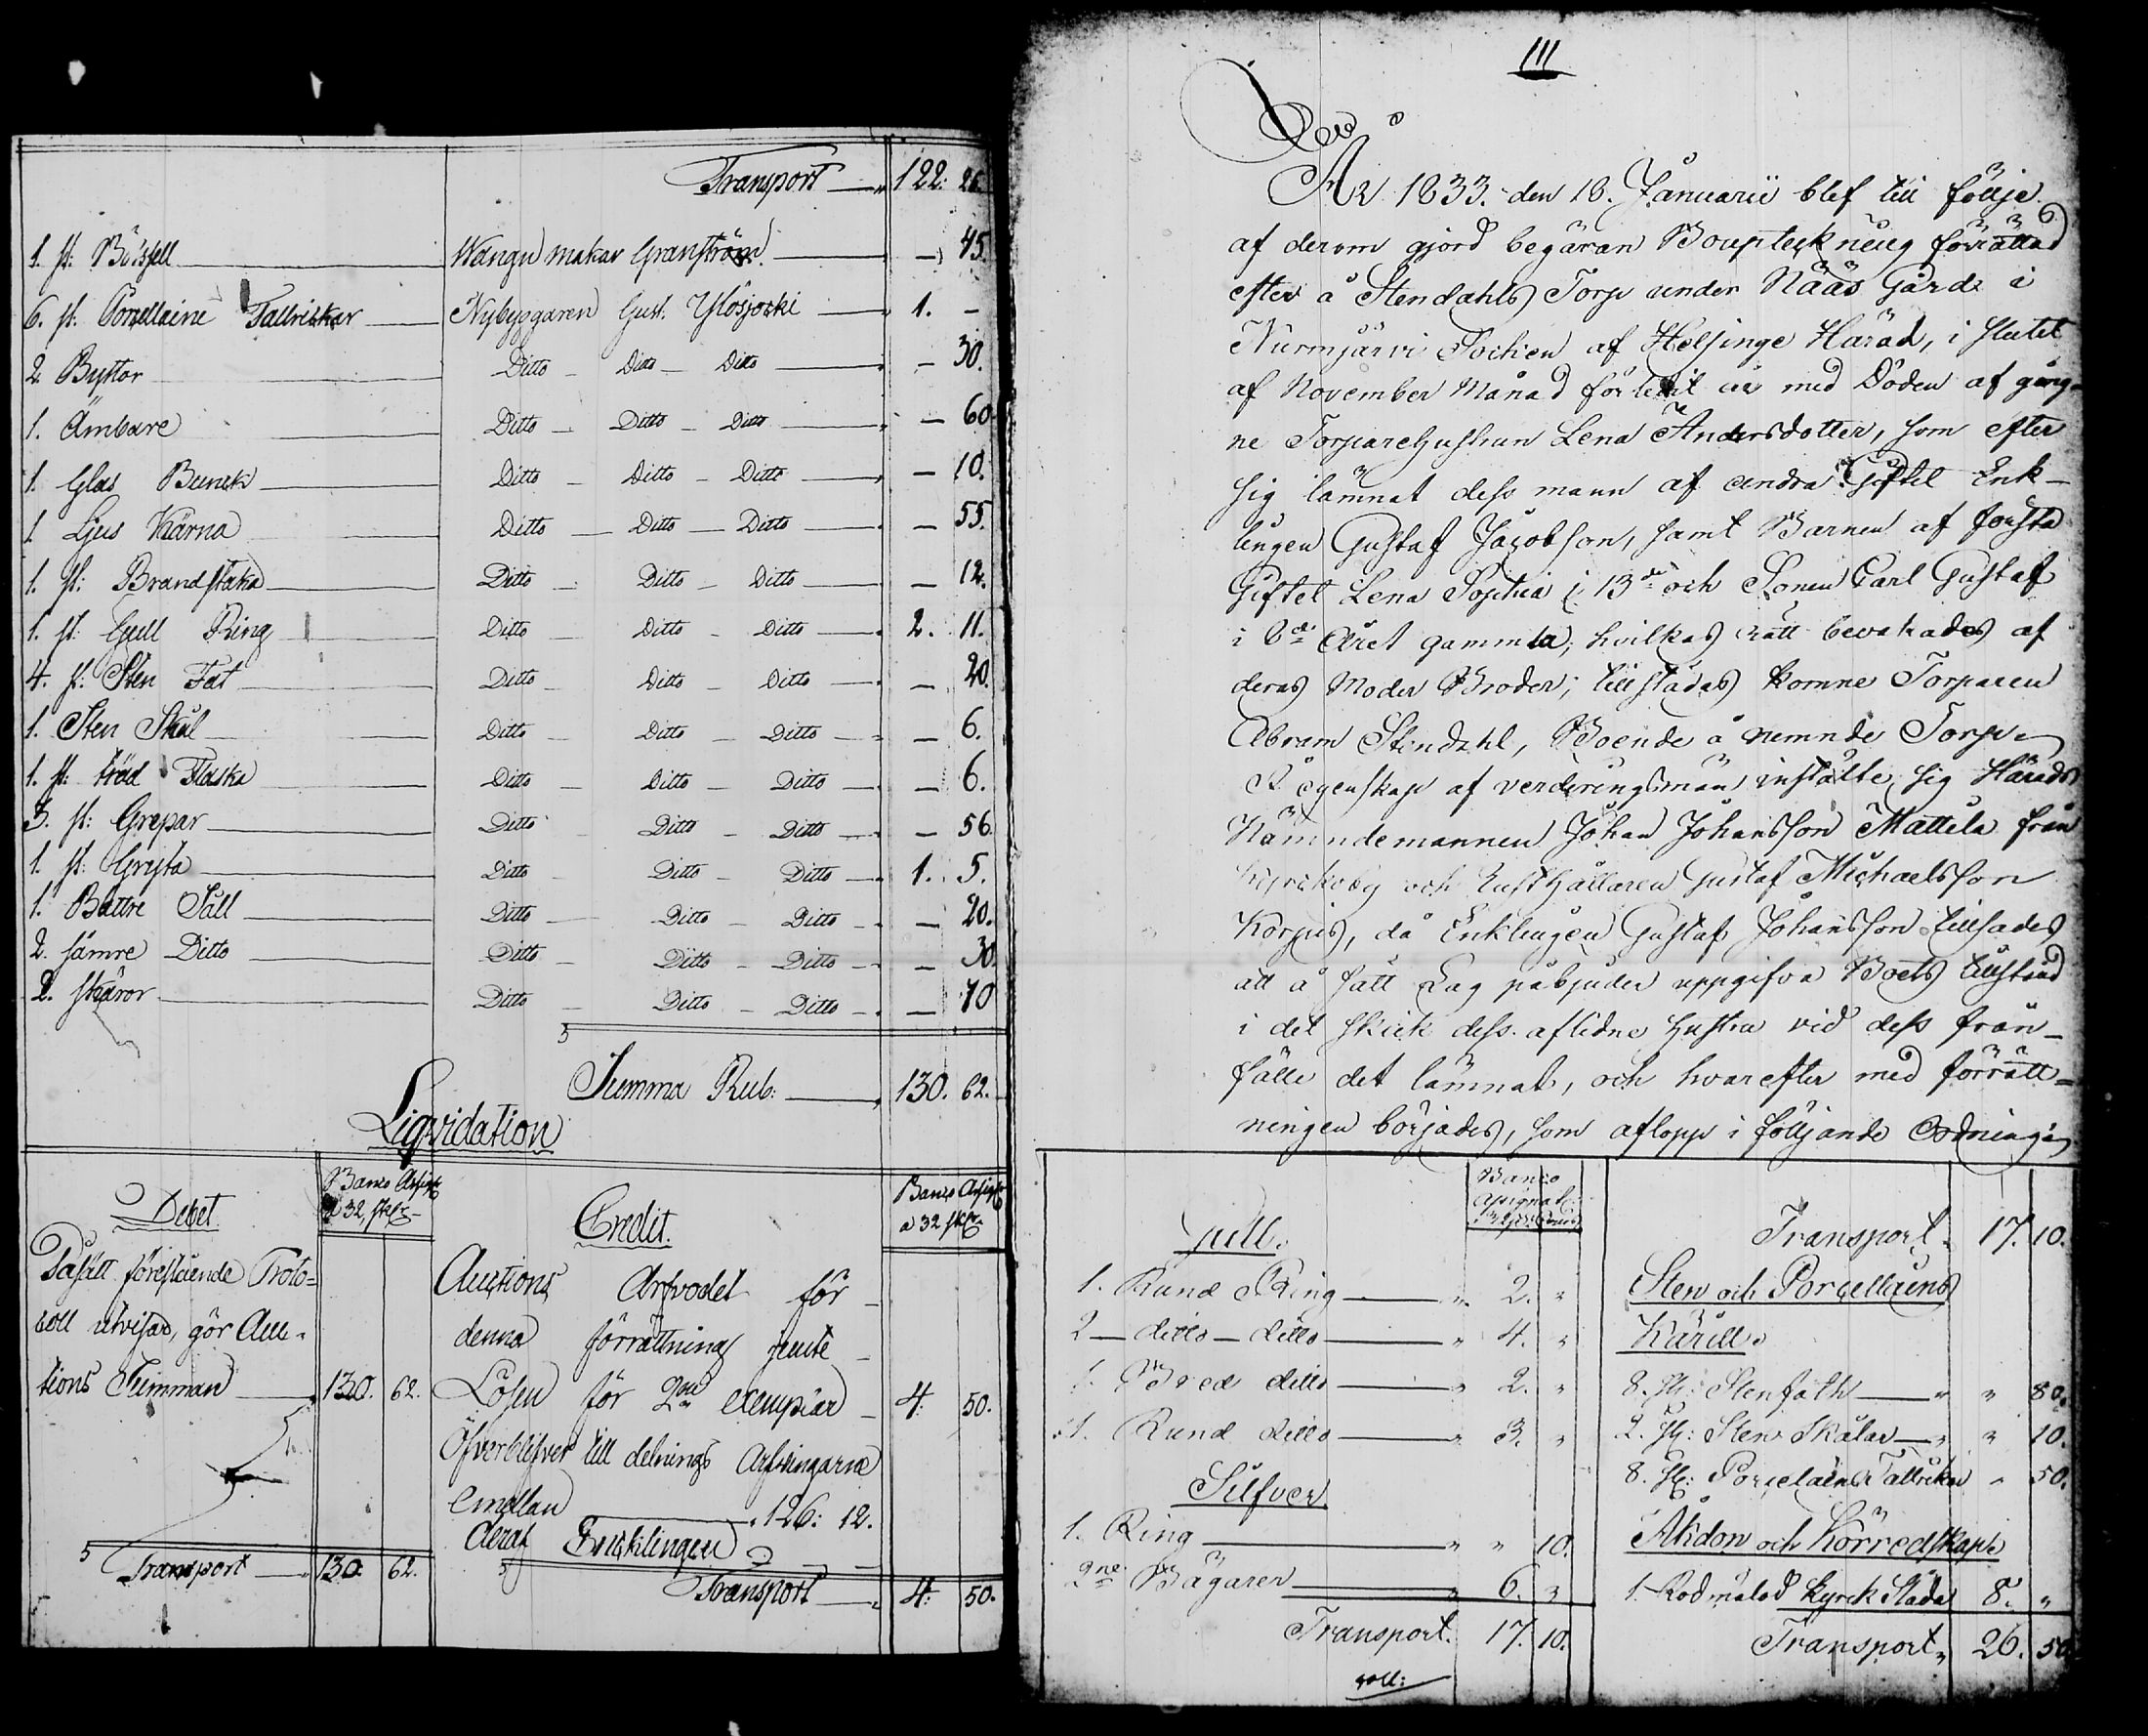 Transport 122. 26.
1. st: Bössell Wangn makar Granström — 45.
6. st. Porsellaine Tallrickar Nybyggaren Gust. Ylösjocki 1. –
2 Byttor Ditto Ditto Ditto — 30.
1. Ämbare Ditto Ditto Ditto — 60.
1. Glas Bunck Ditto Ditto Ditto — 10.
1 Ljus Kärna Ditto Ditto Ditto — 55.
1. st: Brandstaka Ditto Ditto Ditto — 12.
1. st: Gull Ring Ditto Ditto Ditto 2. 11.
4. st: Sten Fat Ditto Ditto Ditto — 20.
1. Sten Skål Ditto Ditto Ditto — 6.
1. st: träd Flaska Ditto Ditto Ditto — 6.
3. st: Grepar Ditto Ditto Ditto — 56.
1. st: Gryta Ditto Ditto Ditto 1. 5.
1. Bättre Såll Ditto Ditto Ditto — 20.
2. sämre Ditto Ditto Ditto Ditto — 30.
2. skäror Ditto Ditto Ditto — 10
Summa Rub: 130. 62.
Liqvidation
Debet Banco Assign a 32, sk
Credit. Banco Assign a 32 sk
Påsätt föreståiende Proto=
coll utvisar, gör Auc-
tions Summan 130. 62.
Transport 130. 62.
Auctions Arfvodet för
denna förrättning jemte
Lösen för 2ne exemplar 4. 50.
Öfverblifver till delnings Arfvingarne
emellan 126: 12.
deraf Encklingen
Transport 4: 50.
111
År 1833. den 18. Januarii blef till följe
af derom gjord begäran Boupteckning förrättad
efter å Stendahls Torp under Nääs Gård i
Nurmijärvi Sochen af Helsinge Härad, i slutet
af November Månad förledit år med Döden af gång-
ne Torpare Hustrun Lena Andersdotter, som efter
sig lämnat dess mann af andra Giftet Enk-
lingen Gustaf Jacobsson, samt Barnen af första
Giftet Lena Sophia i 13de och Sonen Carl Gustaf
i 6de Året gammla, hvilkas rätt bevakades af
deras Moder Broder, tillstädes komne Torparen
Abram Stendahl, Boende å nemnde Torp.
I egenskap af verderingsmän instälte sig Härads
Nämndemannen Johan Johansson Mattila från
Kyrckoby och Gusthållaren Gustaf Michaelsson
Korpis, då Enklingen Gustaf Johansson tillsades
att å sätt Lag påbjuder uppgifva Boets tillstånd
i det skick dess aflidne Hustru vid dess från-
fälle det lämnat, och hvarefter med förrätt=
ningen börjades, som aflopp i följande Ordning:
Banco
Assignat:
Gull.
1. Rund Ring 2. "
2 — ditto — ditto 4. "
1. Bred ditto 2. "
1. Rund ditto 3. "
Silfver
1. Ring " 10.
2ne Bägarer 6. "
Transport. 17. 10.
Transport. 17. 10.
Sten och Porcellains
Käril.
8. st: Stenfath " 80.
2. st: Sten Skålar " 10.
8. st: Porcelains Tallrikar " 50.
Åkdon och Körredskap.
1. Rodmålad Kyrck Släda 8. "
Transport 26. 50